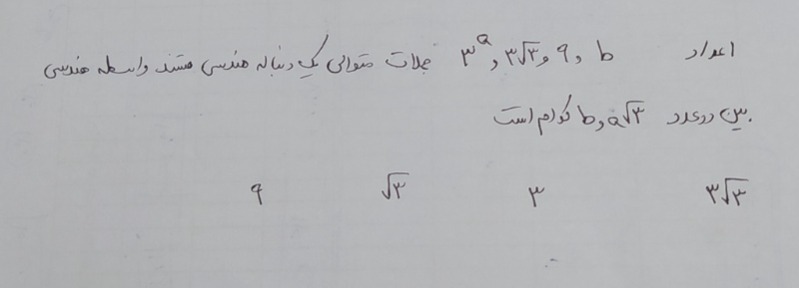 اعداد b و ۹ و ۳√۳ و ۳^a جملات متوالی یک دنباله هندسی هستند واسطه هندسی
بین دو عدد a√۳ و b کدام است
۳√۳ ۳ √۳ ۹